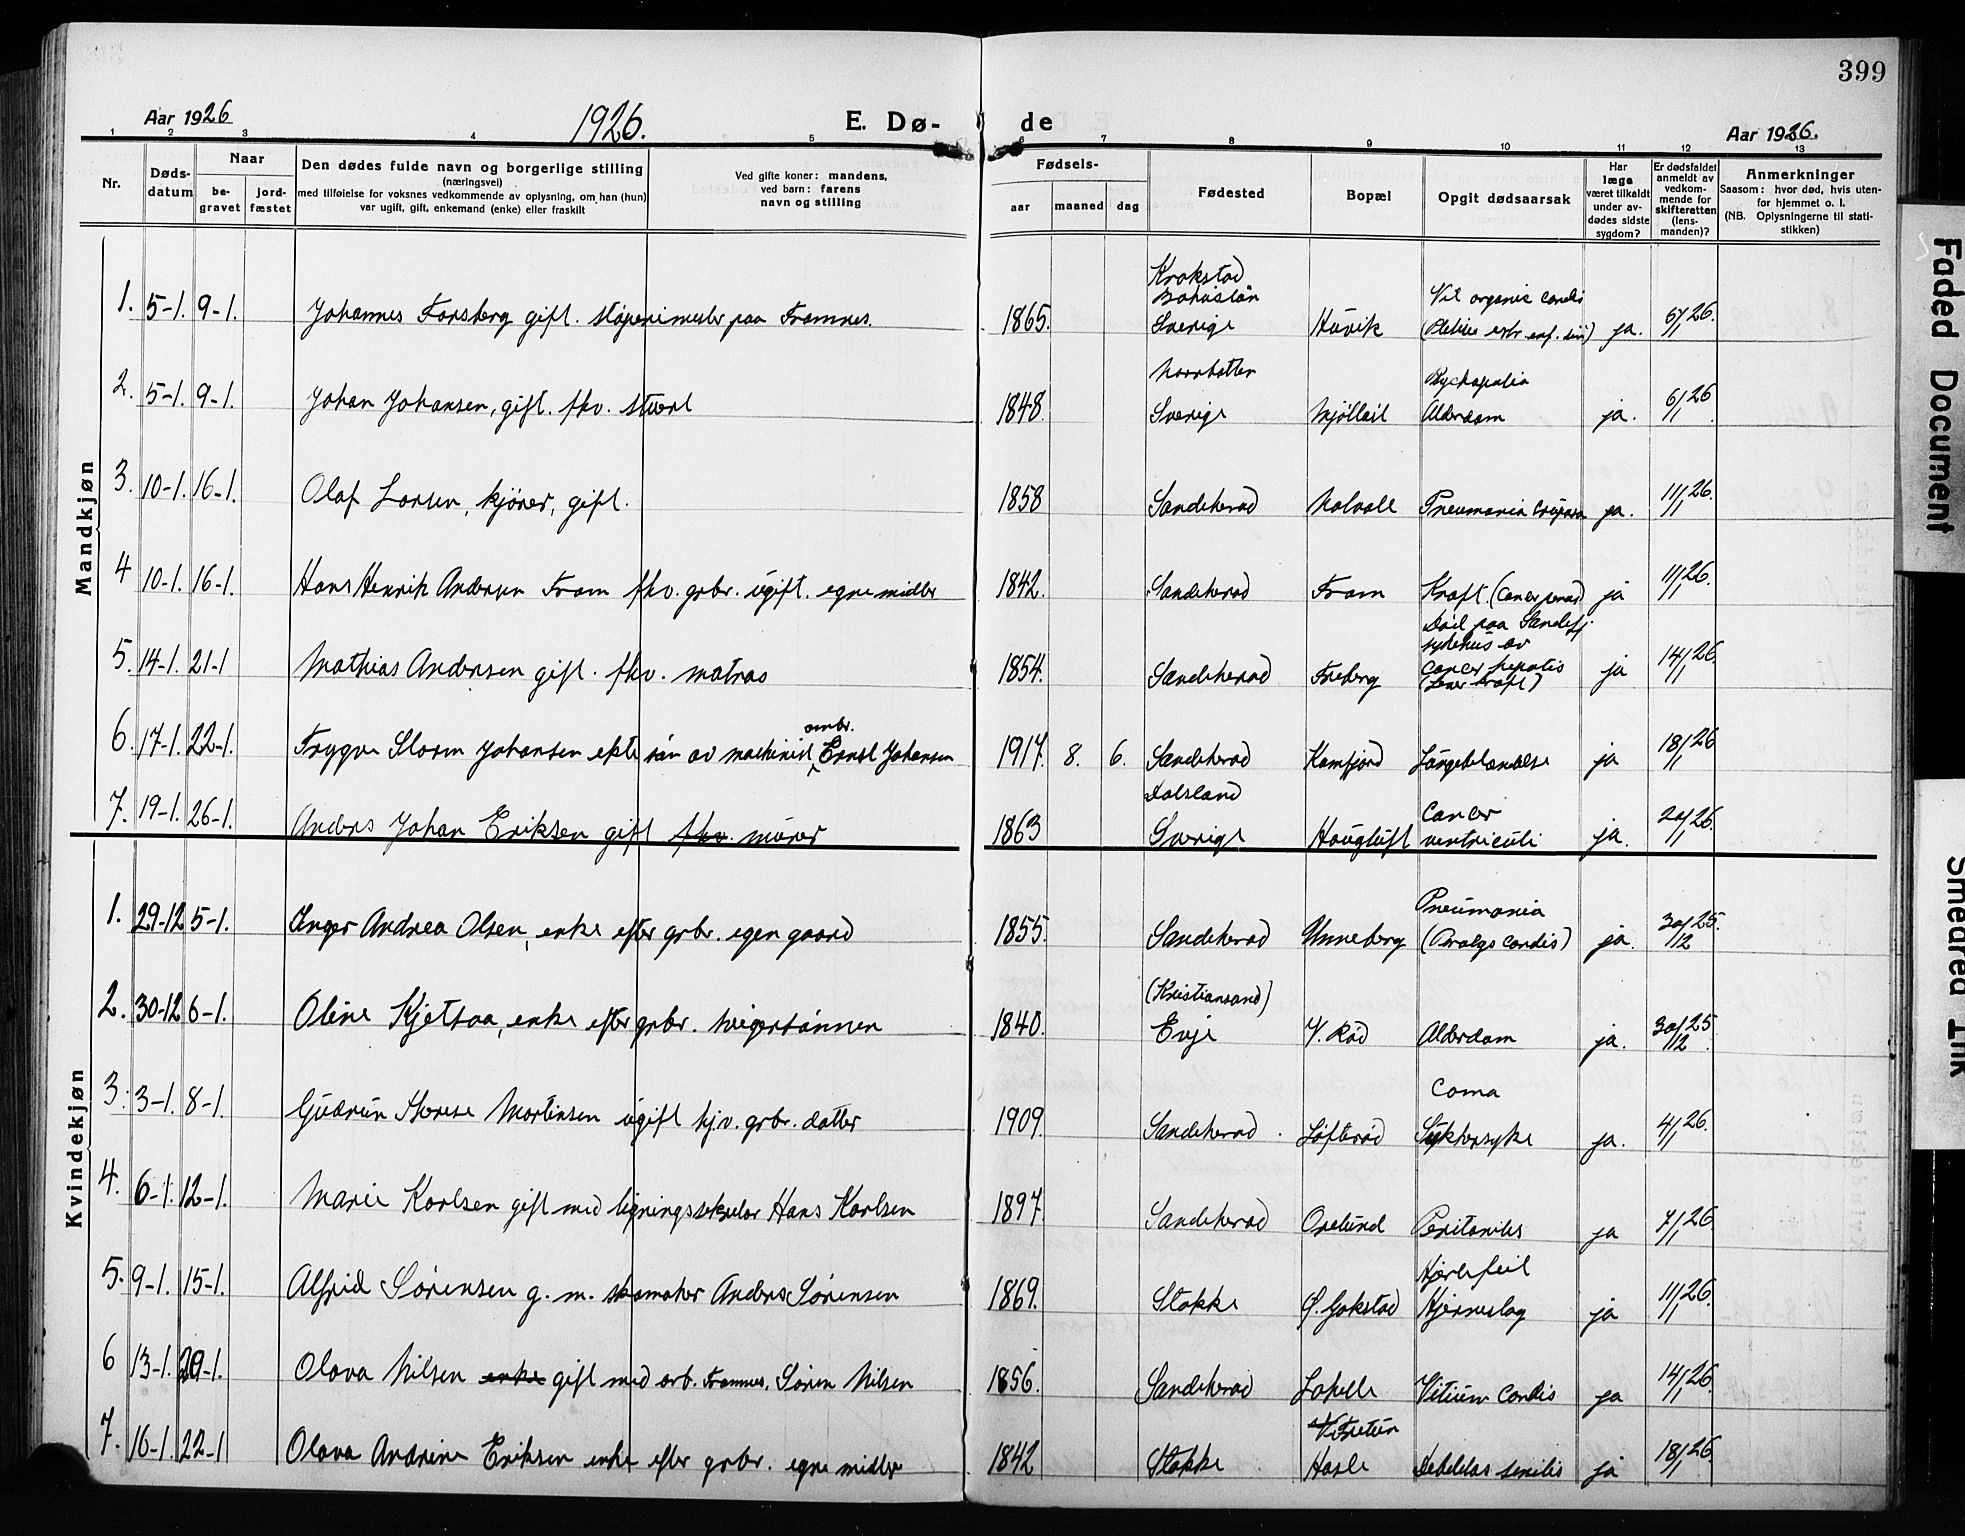 399
Aar 1926
1926.
E. Dø- de
Aar 1926.
1 2 3 4 5 6 7 8 9 10 11 12 13
Nr.
Døds-
datum
Naar
be-
gravet
jord-
fæstet
Den dødes fulde navn og borgerlige stilling
(næringsvei)
med tilføielse for voksnes vedkommende av oplysning, om han (hun)
var ugift, gift, enkemand (enke) eller fraskilt
Ved gifte koner: mandens,
ved barn: farens
navn og stilling
Fødsels-
aar
maaned
dag
Fødested
Bopæl
Opgit dødsaarsak
Har
læge
været tilkaldt
under av-
dødes sidste
sygdom?
Er dødsfaldet
anmeldt av
vedkom-
mende for
skifteretten
(lens-
manden)?
Anmerkninger
Saasom: hvor død, hvis uten-
for hjemmet o. l.
(NB. Oplysningerne til stati-
stikken)
Mandkjøn
1. 5-1. 9-1. Johannes Forsberg gift. støperimester paa Framnes. 1865. Krokstad Bohuslän Sverige Huvik Vit organic cordis ja. 6/1 26.
2. 5-1. 9-1. Johan Johansen, gift. fhv. stuert 1848. Norrbotten Sverige Alderdom ja. 6/1 26
3. 10-1. 16-1. Olaf Larsen, kjører, gift. 1858 Sandeherad Pneumonia ja. 11/1 26.
4 10-1. 16-1. Hans Henrik Andersen Fram fhv. grbr. ugift. egne midler 1842. Sandeherad Fram Kræft. ja 11/1 26.
5. 14-1. 21-1 Mathias Andersen gift. fhv. matros 1854. Sandeherad Freberg Død paa Sandefj. sykehus av cancer hepatis (Leverkræft) ja 14/1 26.
6. 17-1. 22-1. Trygve Storm Johansen ekte søn av maskinist ombr. Ernst Johansen 1917. 8. 6. Sandeherad Kamfjord Lungebetændelse ja 18/1 26
7. 19-1. 26-1. Anders Johan Eriksen gift fhv. murer 1863 Dalsland Sverige Haugtuft Cancer ventriculi ja. 20/1 26.
Kvindekjøn
1. 29-12 5-1. Inger Andrea Olsen, enke efter grbr. egen gaard 1855. Sandeherad Unneberg Pneumonia (Paralys cordis) ja. 30/12 25.
2. 30-12 6-1. Oline Kjetsaa, enke efter grbr. 1840. (Kristiansand) Evje V. Rød Alderdom ja. 30/12 25
3. 3-1. 8-1. Gudrun Therese Martinsen ugift hjv. grbr. datter 1909. Sandeherad. Løfterød Coma Sukkersyke ja. 4/1 26.
4. 6-1. 12-1. Marie Karlsen gift med ligningssekretær Hans Karlsen 1897. Sandeherad Orelund Peritonitis ja 7/1 26.
5. 9-1. 15-1. Alfrid Sørensen g. m. skomaker Anders Sørensen 1869. Stokke Ø. Gokstad Hjertefeil Hjerneslag ja 11/1 26.
6 13-1. 20-1. Olava Nilsen enke gift med arb. Framnes, Søren Nilsen 1856. Sandeherad Lahelle Vitium cordis ja 14/1 26.
7. 16-1. 22-1 Olava Andrine Eriksen enke efter grbr. egne midler 1842 Stokke Hasle Debilitas senilis ja 18/1 26.
Faded Document
Smeared Ink